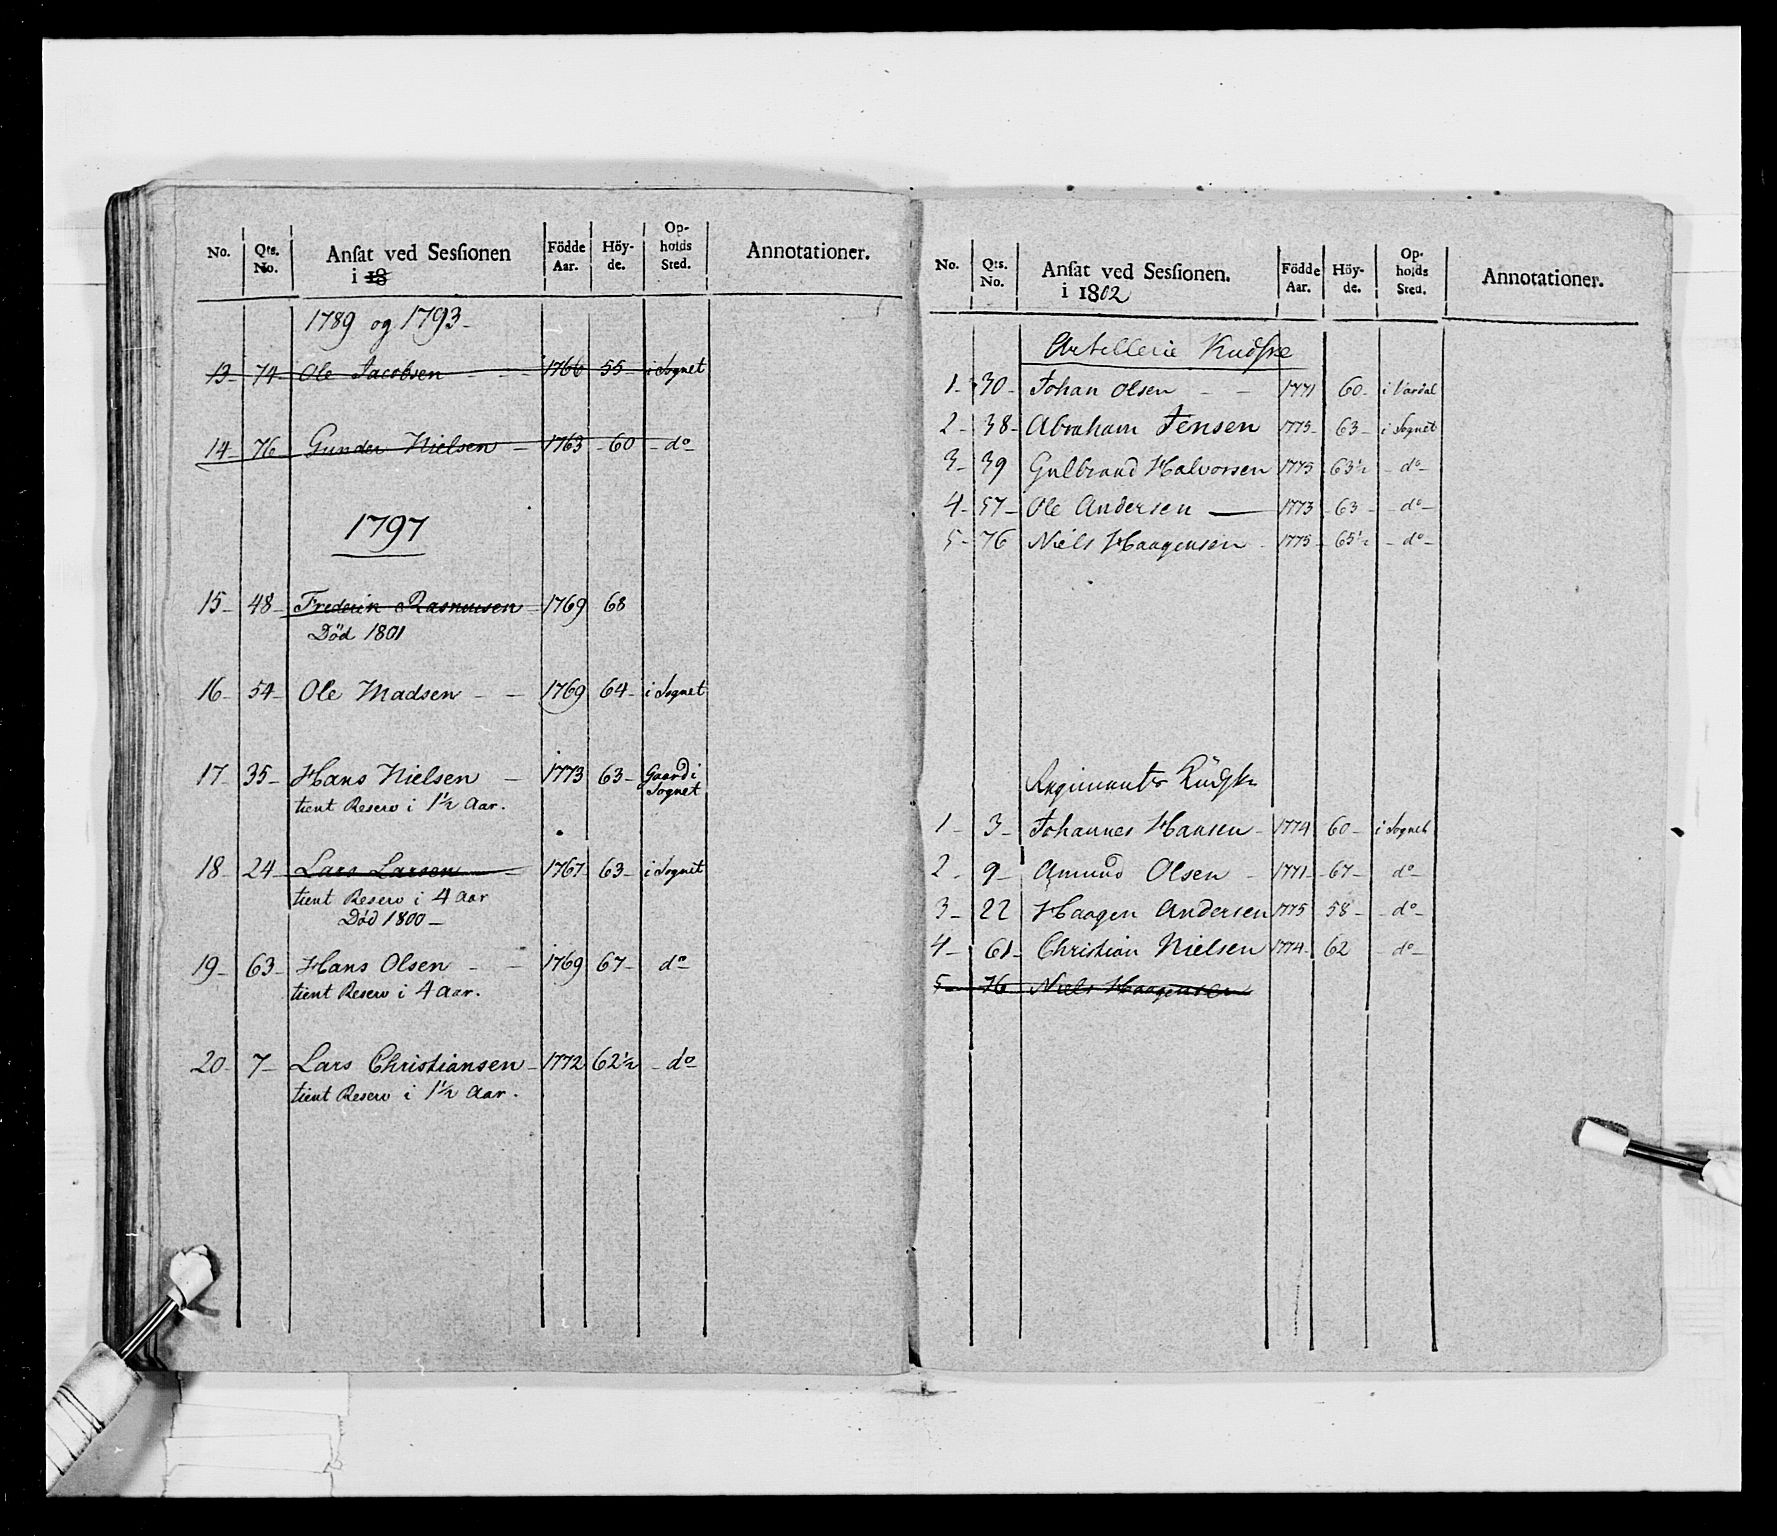 No. Qts. No. Ansat ved Sessionen i 18 Födde Aar. Höy-de. Op-holds Sted. Annotationer.
1789 og 1793-
13- 74- Ole Jacobsen - - 1766 55- i Sognet
14- 76- Gunder Nielsen - 1763 -60 -do-
1797
15- 48- Frederik Rasmusen - 1769 68
Död 1801
16- 54- Ole Madsen - - 1769 64- i Sognet
17- 35- Hans Nielsen - 1773 63- Gaard i Sognet
tient Reserv i 1½ Aar.
18- 24- Lars Larsen - 1767 63- i Sognet
tient Reserv i 4 Aar
Död 1800-
19- 63- Hans Olsen - - 1769 67- do-
tient Reserv i 4 Aar.
20- 7- Lars Christiansen - 1772 62½ -do-
tient Reserv i 1½ Aar.
No. Qts. No. Ansat ved Sessionen. i 1802 Födde Aar. Höy-de. Op-holds Sted. Annotationer.
Artillerie Kudske
1- 30- Johan Olsen - - 1771 60- i Vardal
2- 38- Abraham Jensen 1775- 63- i Sognet
3- 39 Gulbrand Halvorsen 1775 63½ -do-
4- 57- Ole Andersen - 1773 63- -do-
5- 76 Niels Haagensen - 1775 65½ -do-
Regiments Kudske
1- 3- Johannes Hansen - 1774 60- i Sognet
2- 9- Amund Olsen - 1771- -67- do-
3- 22 Haagen Andersen 1775 58- -do-
4- 61- Christian Nielsen 1774- 62 -do-
5- 76 Niels Haagensen